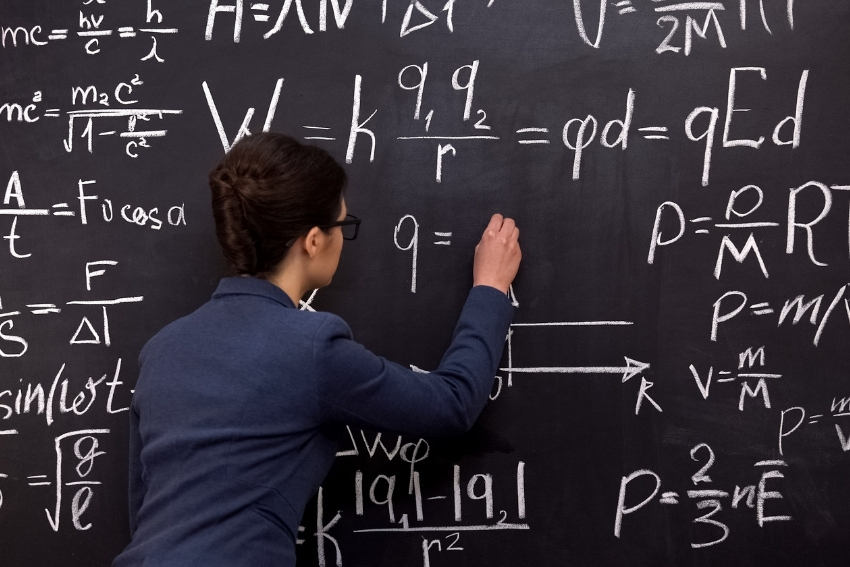 mc = hν/c = h/λ
H = λN
Δt
V = /2M
mc² = m₂c²/√1-
W = k q₁q₂/r = φd = qEd
A/t = Fυcosa
q =
p = ρ/M RT
S = F/Δl
p = m/V
sin(ωt
R
ν = m/M
p = m/V
= √g/l
Wφ
= k |q₁|-|q₂|/r²
p = 2/3 nE